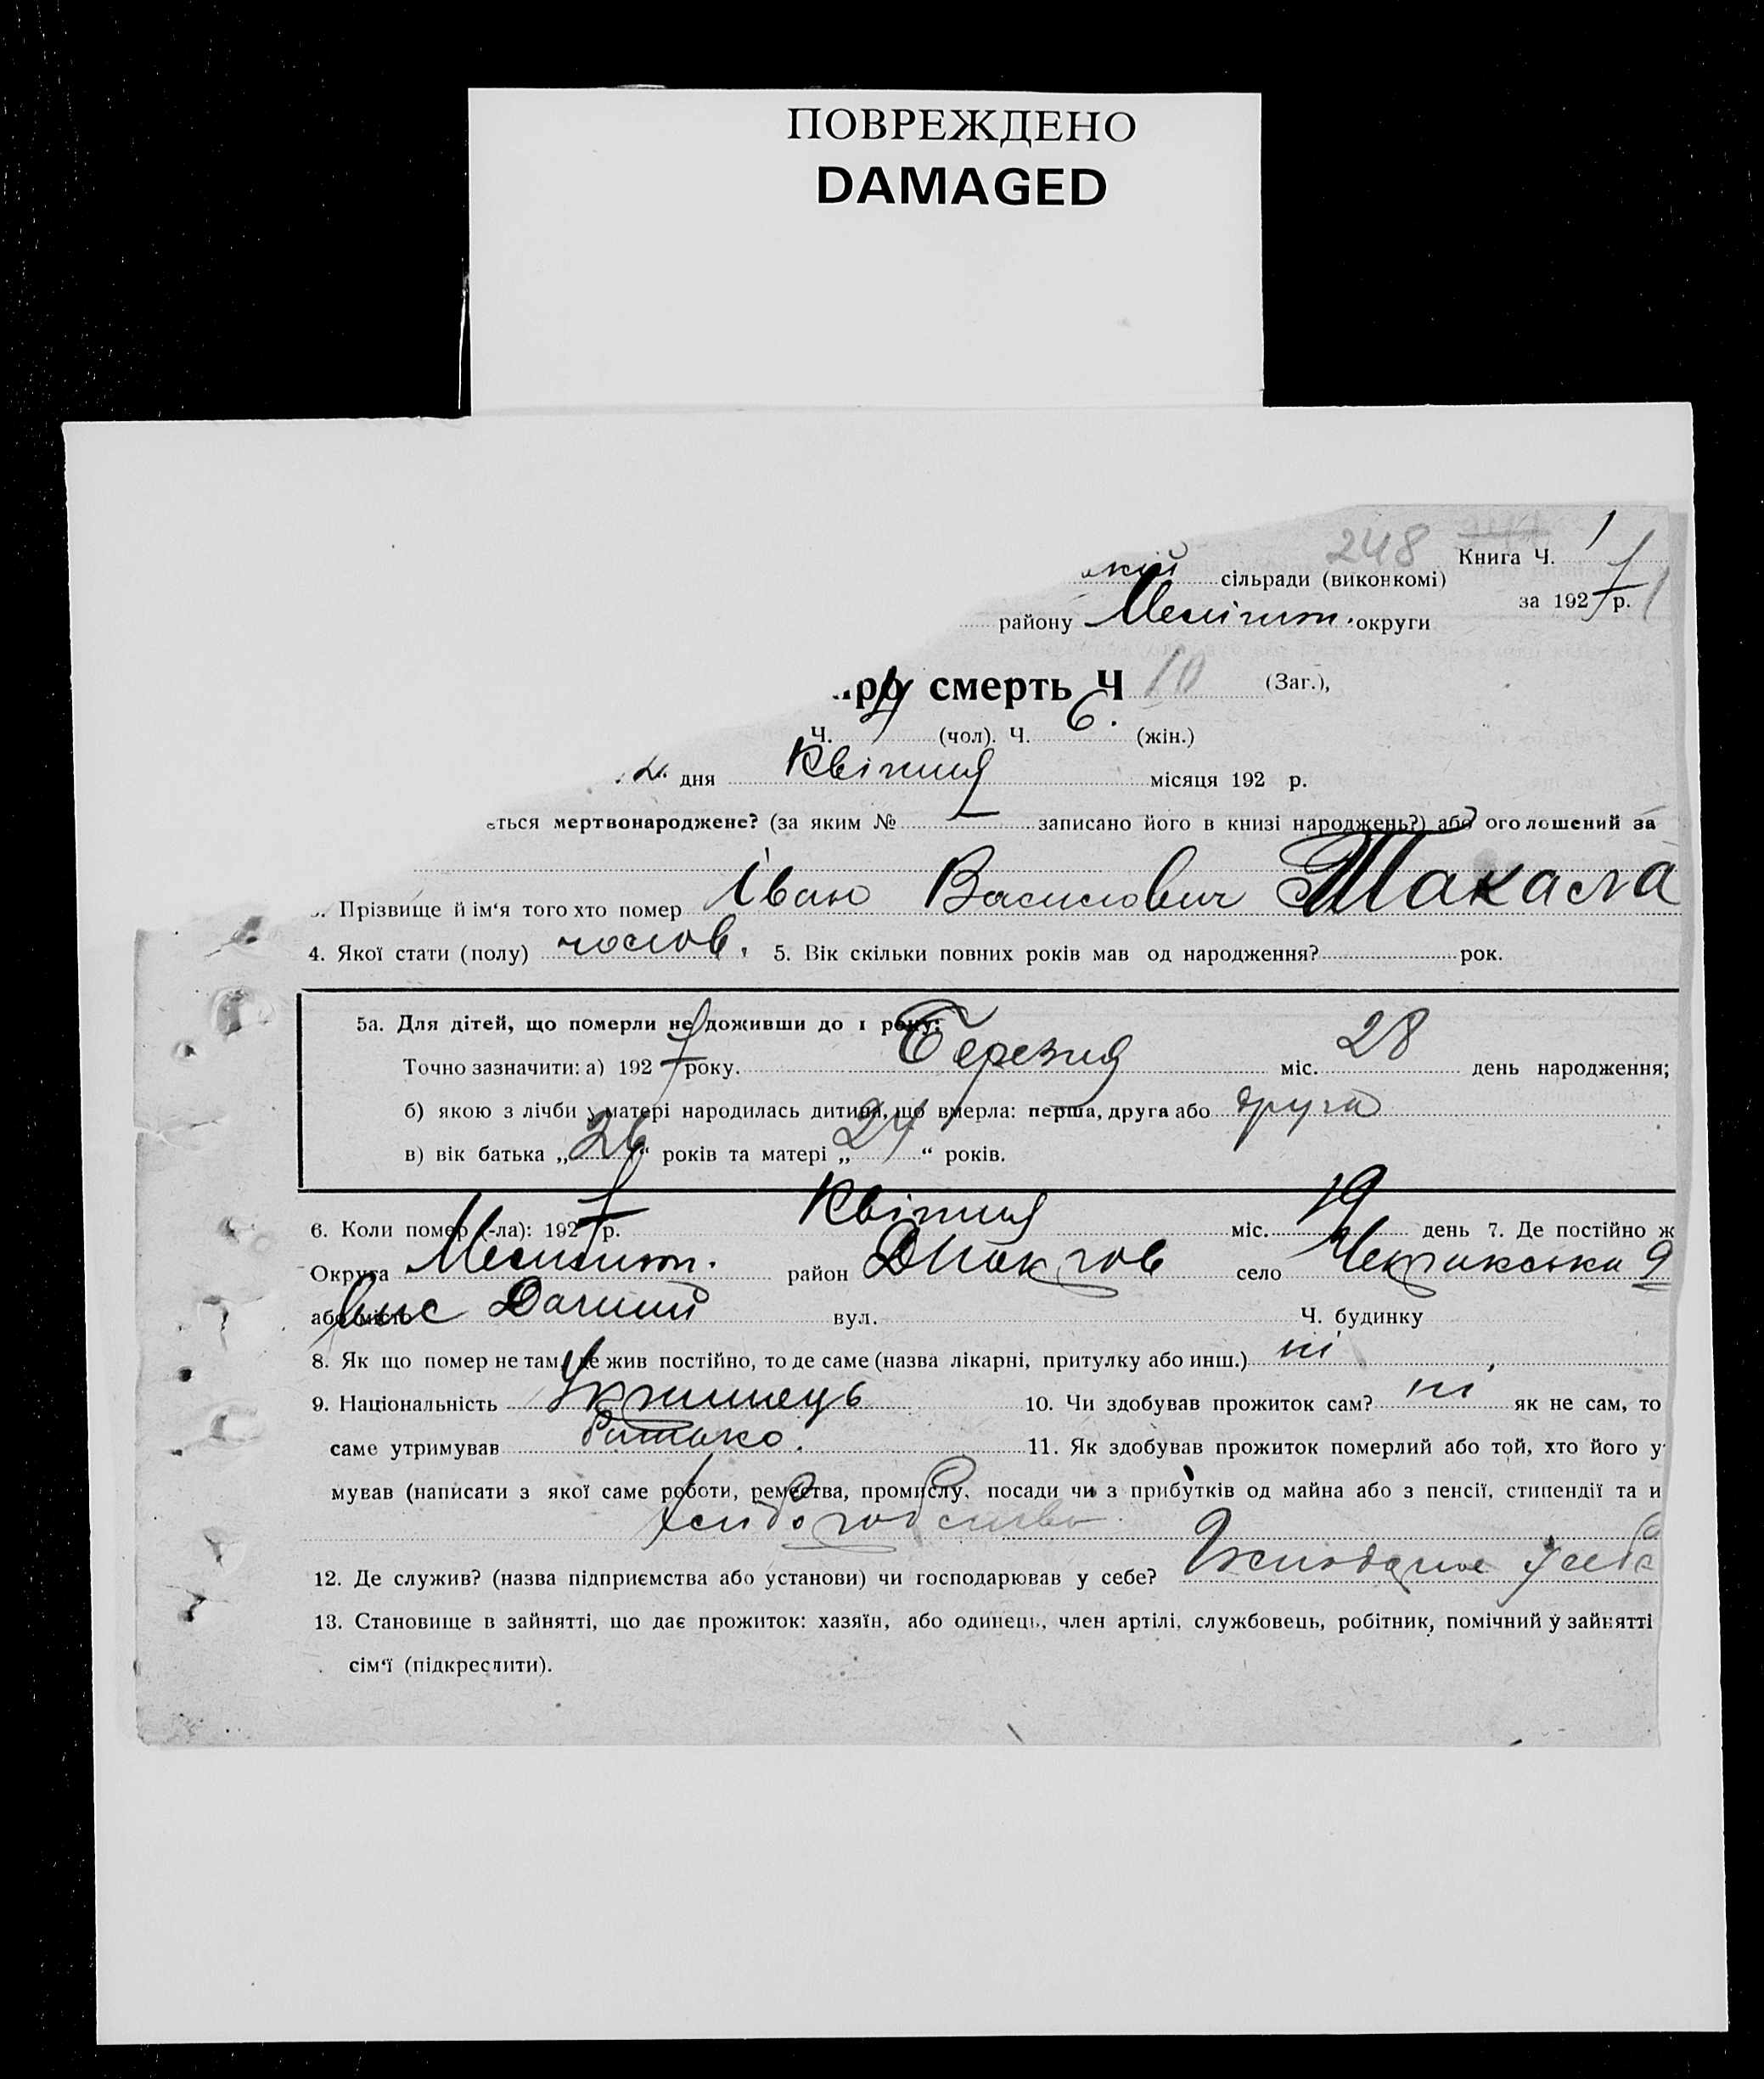 ПОВРЕЖДЕНО
DAMAGED
248 Книга Ч. 1
сільради (виконкомі)
за 1927 р.
району округи
про смерть Ч 10 (Заг.),
Ч. 4 (чол). Ч. 6. (жін.)
дня Квітня місяця 192 р.
ється мертвонароджене? (за яким № записано його в книзі народжень?) або оголошений за
Прізвище й ім'я того хто помер Іван Василович Такала
4. Якої стати (полу) чолов. 5. Вік скільки повних років мав од народження? рок.
5а. Для дітей, що померли не доживши до 1 року:
Точно зазначити: а) 1927 року. Березня міс. 28 день народження;
б) якою з лічби у матері народилась дитина, що вмерла: перша, друга або друга
в) вік батька „26“ років та матері „24“ років.
6. Коли помер (-ла): 1927 р. Квітня міс. 19 день 7. Де постійно ж
Округа район село
або місто вул. Ч. будинку
8. Як що помер не там, де жив постійно, то де саме (назва лікарні, притулку або инш.) ні
9. Національність 10. Чи здобував прожиток сам? ні як не сам, то
саме утримував батько. 11. Як здобував прожиток померлий або той, хто його у
мував (написати з якої саме роботи, ремества, промислу, посади чи з прибутків од майна або з пенсії, стипендії та и
12. Де служив? (назва підприємства або установи) чи господарював у себе?
13. Становище в зайнятті, що дає прожиток: хазяїн, або одинець, член артілі, службовець, робітник, помічний у зайнятті
сім'ї (підкреслити).